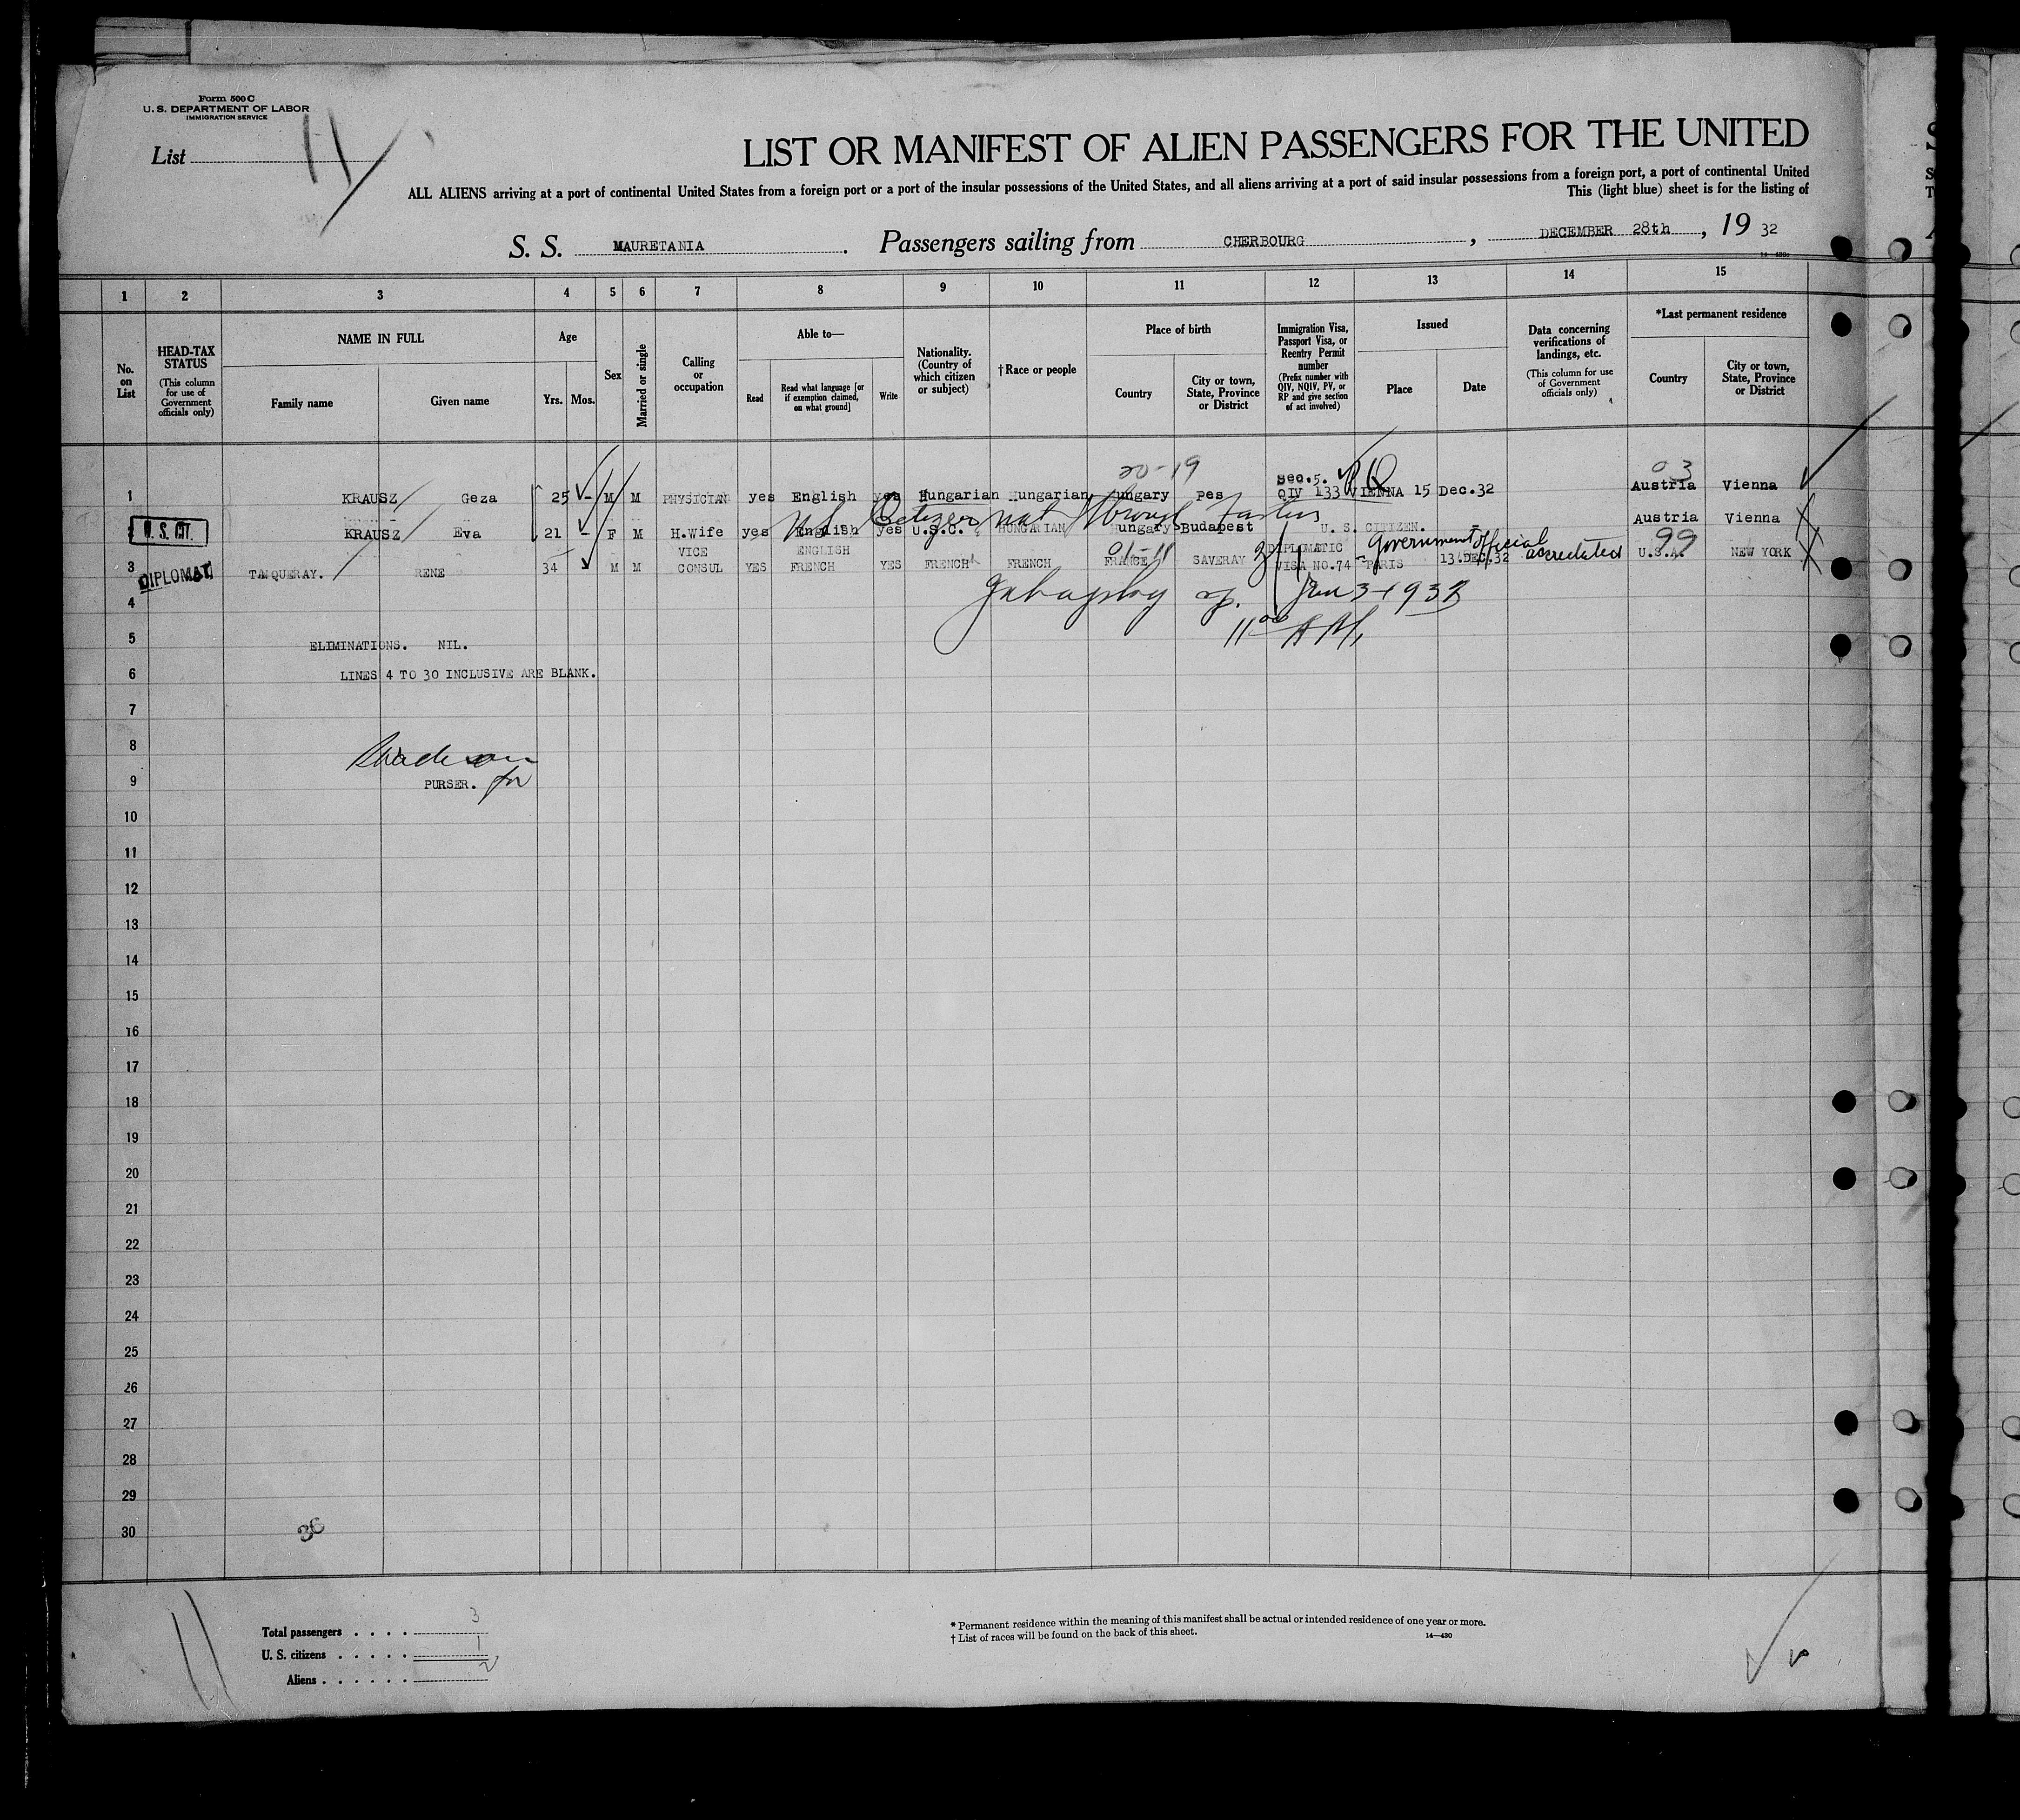 Form 500 C
U. S. DEPARTMENT OF LABOR
IMMIGRATION SERVICE
List 11
LIST OR MANIFEST OF ALIEN PASSENGERS FOR THE UNITED
ALL ALIENS arriving at a port of continental United States from a foreign port or a port of the insular possessions of the United States, and all aliens arriving at a port of said insular possessions from a foreign port, a port of continental United
This (light blue) sheet is for the listing of
S. S. MAURETANIA. Passengers sailing from CHERBOURG, DECEMBER 28th, 19 32
1 2 3 4 5 6 7 8 9 10 11 12 13 14 15
No. on List
HEAD-TAX STATUS (This column for use of Government officials only)
NAME IN FULL
Family name Given name
Age
Yrs. Mos.
Sex
Married or single
Calling or occupation
Able to—
Read Read what language [or if exemption claimed, on what ground] Write
Nationality. (Country of which citizen or subject)
†Race or people
Place of birth
Country City or town, State, Province or District
Immigration Visa, Passport Visa, or Reentry Permit number (Prefix number with QIV, NQIV, PV, or RP and give section of act involved)
Issued
Place Date
Data concerning verifications of landings, etc. (This column for use of Government officials only)
*Last permanent residence
Country City or town, State, Province or District
20-19 03
Sec.5.
1 KRAUSZ Geza 25 - M M PHYSICIAN yes English yes Hungarian Hungarian Hungary Pes QIV 133 VIENNA 15 Dec.32 Austria Vienna
U.S. Citizen nat through
2 U. S. CIT. KRAUSZ Eva 21 - F M H.Wife yes English yes U.S.C. HUNGARIAN Hungary Budapest U. S. CITIZEN. - Austria Vienna
91-11 Government official accredited 99
3 DIPLOMAT TANQUERAY. RENE 34 M M VICE CONSUL YES ENGLISH FRENCH YES FRENCH FRENCH FRANCE SAVERAY DIPLOMATIC VISA NO.74 PARIS 13.DEC.32 U.S.A. NEW YORK
4 Jan 3-1933
11 00 AM
5 ELIMINATIONS. NIL.
6 LINES 4 TO 30 INCLUSIVE ARE BLANK.
7
8
9 PURSER. for
10
11
12
13
14
15
16
17
18
19
20
21
22
23
24
25
26
27
28
29
30
36
11
Total passengers . . . . 3
U. S. citizens . . . . . 1
Aliens . . . . . . 2
* Permanent residence within the meaning of this manifest shall be actual or intended residence of one year or more.
† List of races will be found on the back of this sheet. 14—430